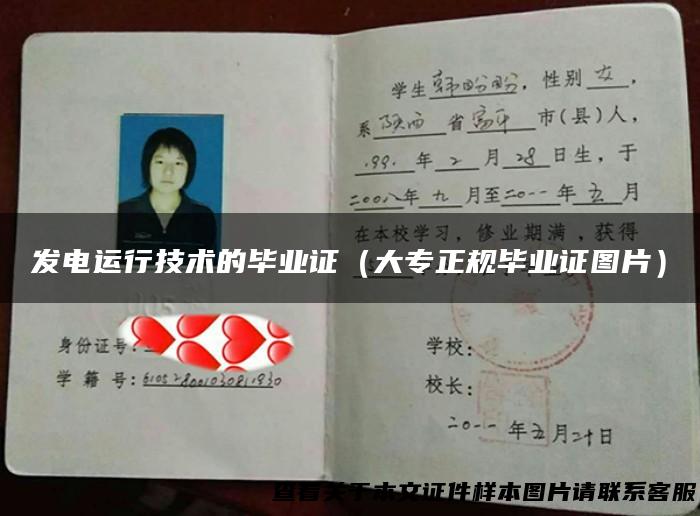 学生韩盼盼，性别女，
系陕西省富平市(县)人，
199.年2月28日生，于
二00八年九月至二0一一年五月
在本校学习，修业期满，获得
发电运行技术的毕业证（大专正规毕业证图片）
身份证号:
学籍号:
学校:
校长:
二0一一年五月二十日
查看关于本文证件样本图片请联系客服